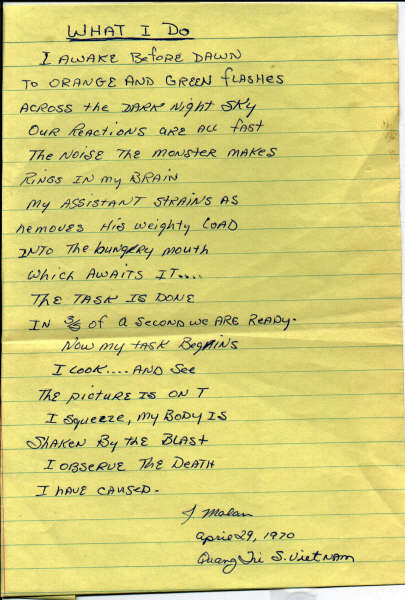 WHAT I DO
I AWAKE BEFORE DAWN
TO ORANGE AND GREEN FLASHES
ACROSS the DARK Night SKY
OUR REACTIONS ARE ALL FAST
The NOISE The MONSTER MAKES
RINGS IN my BRAIN
my ASSISTANT STRAINS AS
REMOVES His weighty LOAD
INTO The hungery mouth
Which AWAITS IT....
THE TASK IS DONE
IN 3/5 of a second we ARE READY.
NOW my TASK BEGINS
I LOOK.... AND See
The picture IS ON T
I squeeze, my BODY IS
SHAKEN BY the BLAST
I OBSERVE The DEATH
I HAVE CAUSED.
J. Molan
April 29, 1970
Quang Tri S. VIETNAM